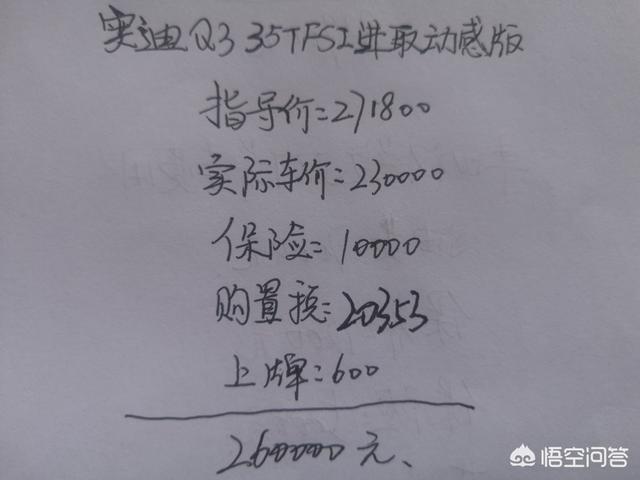 奥迪Q3 35TFSI进取动感版
指导价=271800
实际车价=230000
保险=10000
购置税=20353
上牌=600
260000元、
悟空问答